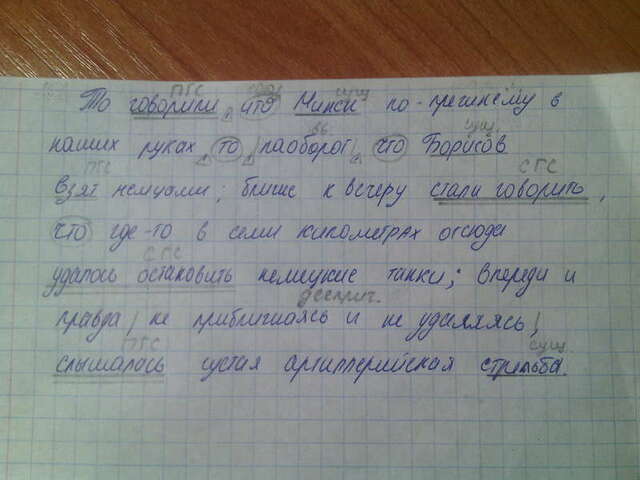 ПГС сущ.
То говорили, что Минск по-прежнему в
вв. сущ.
наших руках, то, наоборот, что Борисов
ПГС СГС
взят немцами; ближе к вечеру стали говорить,
что где-то в семи километрах отсюда
СГС
удалось остановить немецкие танки; впереди и
дееприч.
правда, не приближаясь и не удаляясь,
ПГС сущ.
слышалась густая артиллерийская стрельба.